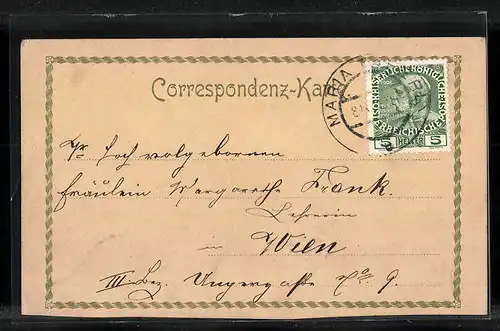 Correspondenz-Karte
MARIA
KAISERLICHE KÖNIGLICHE
ÖSTERREICHISCHE
5 HELLER 5
Hochwolgebornen
Fräulein Margarethe Frank.
Lehrerin
in
Wien
III. Bez. Ungergasse No 9.